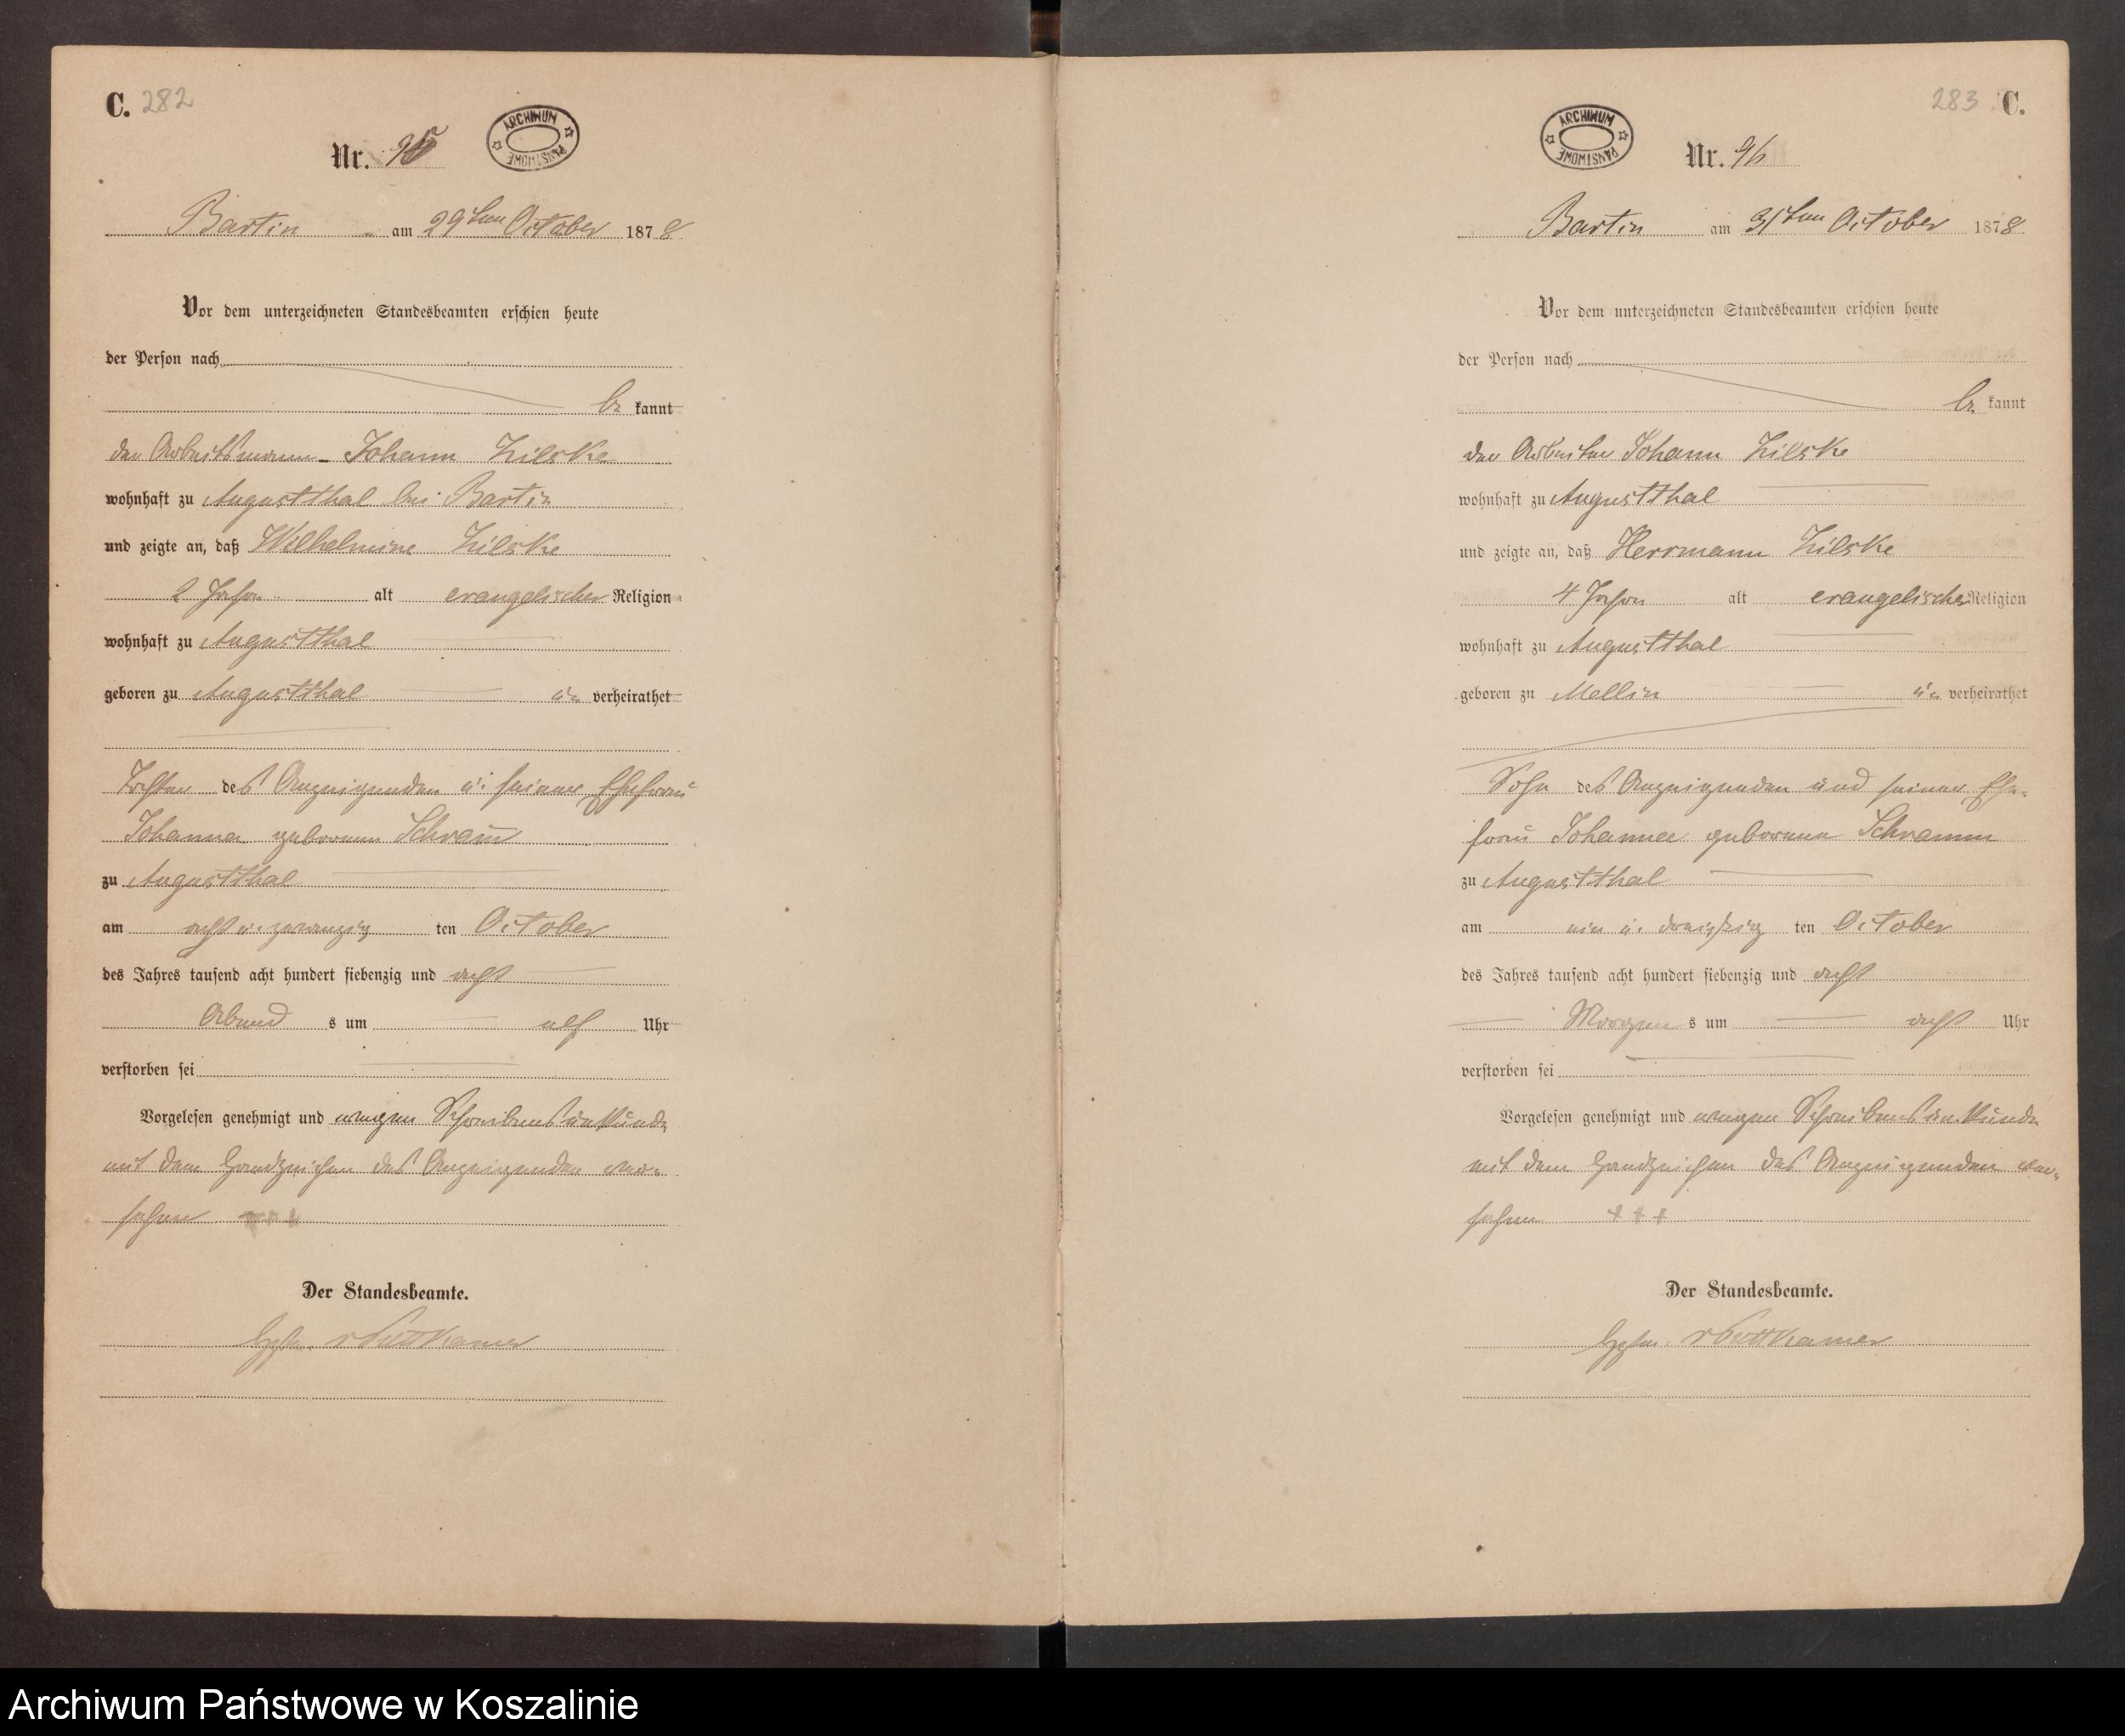 C. 282
ARCHIWUM PAŃSTWOWE
Nr. 95
Bartin am 29ten October 1878
Vor dem unterzeichneten Standesbeamten erschien heute
der Person nach
be kannt
der Arbeitsmann Johann Zilske
wohnhaft zu Augustthal bei Bartin
und zeigte an, daß Wilhelmine Zilske
2 Jahre alt evangelischer Religion
wohnhaft zu Augustthal
geboren zu Augustthal un verheirathet
Tochter des Anzeigenden u: seiner Ehefrau
Johanna geborenen Schram̅
zu Augustthal
am acht u. zwanzig ten October
des Jahres tausend acht hundert siebenzig und acht
Abend s um elf Uhr
verstorben sei
Vorgelesen genehmigt und wegen Schreibensunkunde
mit dem Handzeichen des Anzeigenden ver-
sehen +++
Der Standesbeamte.
v Puttkamer
283 C.
ARCHIWUM PAŃSTWOWE
Nr. 96
Bartin am 31ten October 1878
Vor dem unterzeichneten Standesbeamten erschien heute
der Person nach
be kannt
der Arbeiter Johann Zilske
wohnhaft zu Augustthal
und zeigte an, daß Herrmann Zilske
4 Jahre alt evangelischer Religion
wohnhaft zu Augustthal
geboren zu Mellin un verheirathet
Sohn des Anzeigenden und seiner Ehe-
frau Johanna geborene Schramm
zu Augustthal
am ein u. dreißig ten October
des Jahres tausend acht hundert siebenzig und acht
Morgen s um acht Uhr
verstorben sei
Vorgelesen genehmigt und wegen Schreibensunkunde
mit dem Handzeichen des Anzeigenden ver-
sehen +++
Der Standesbeamte.
v Puttkamer
Archiwum Państwowe w Koszalinie